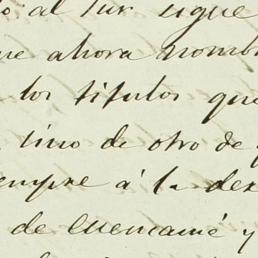 al sur sigue
ahora nombr
los titulos que
uno de otro de
empre á la der
de Cuencamé y